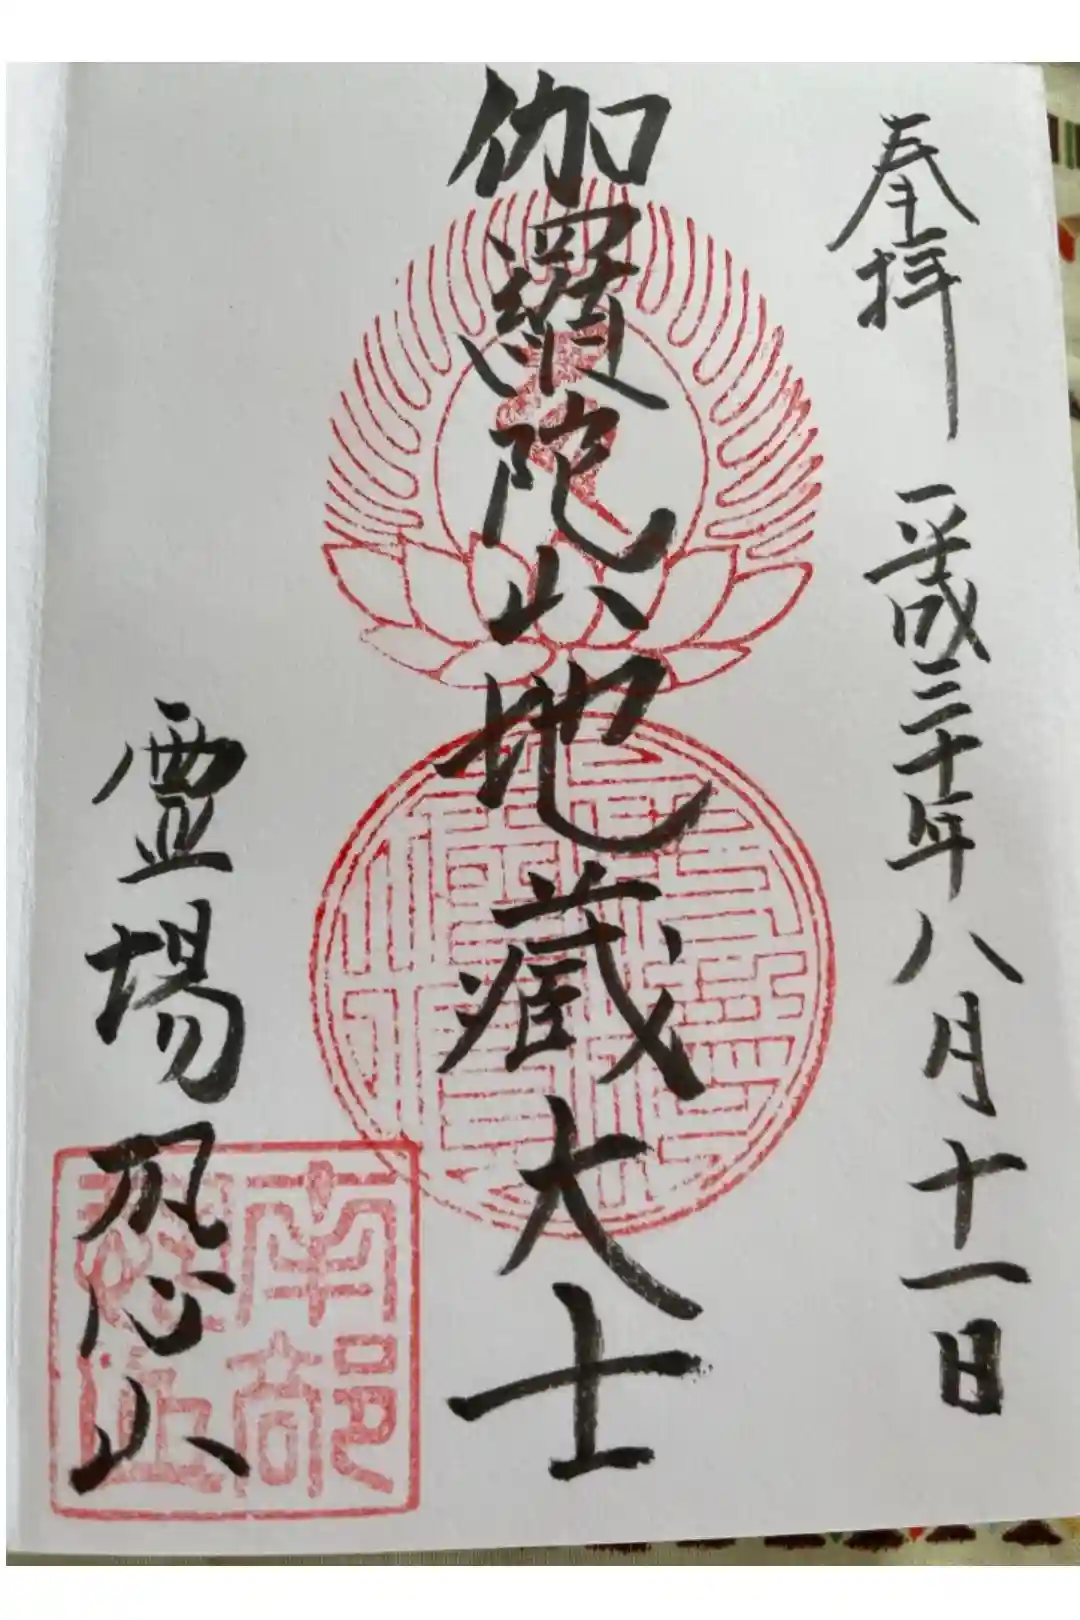 奉拝 平成三十年八月十一日
伽羅陀山地蔵大士
霊場恐山
南部